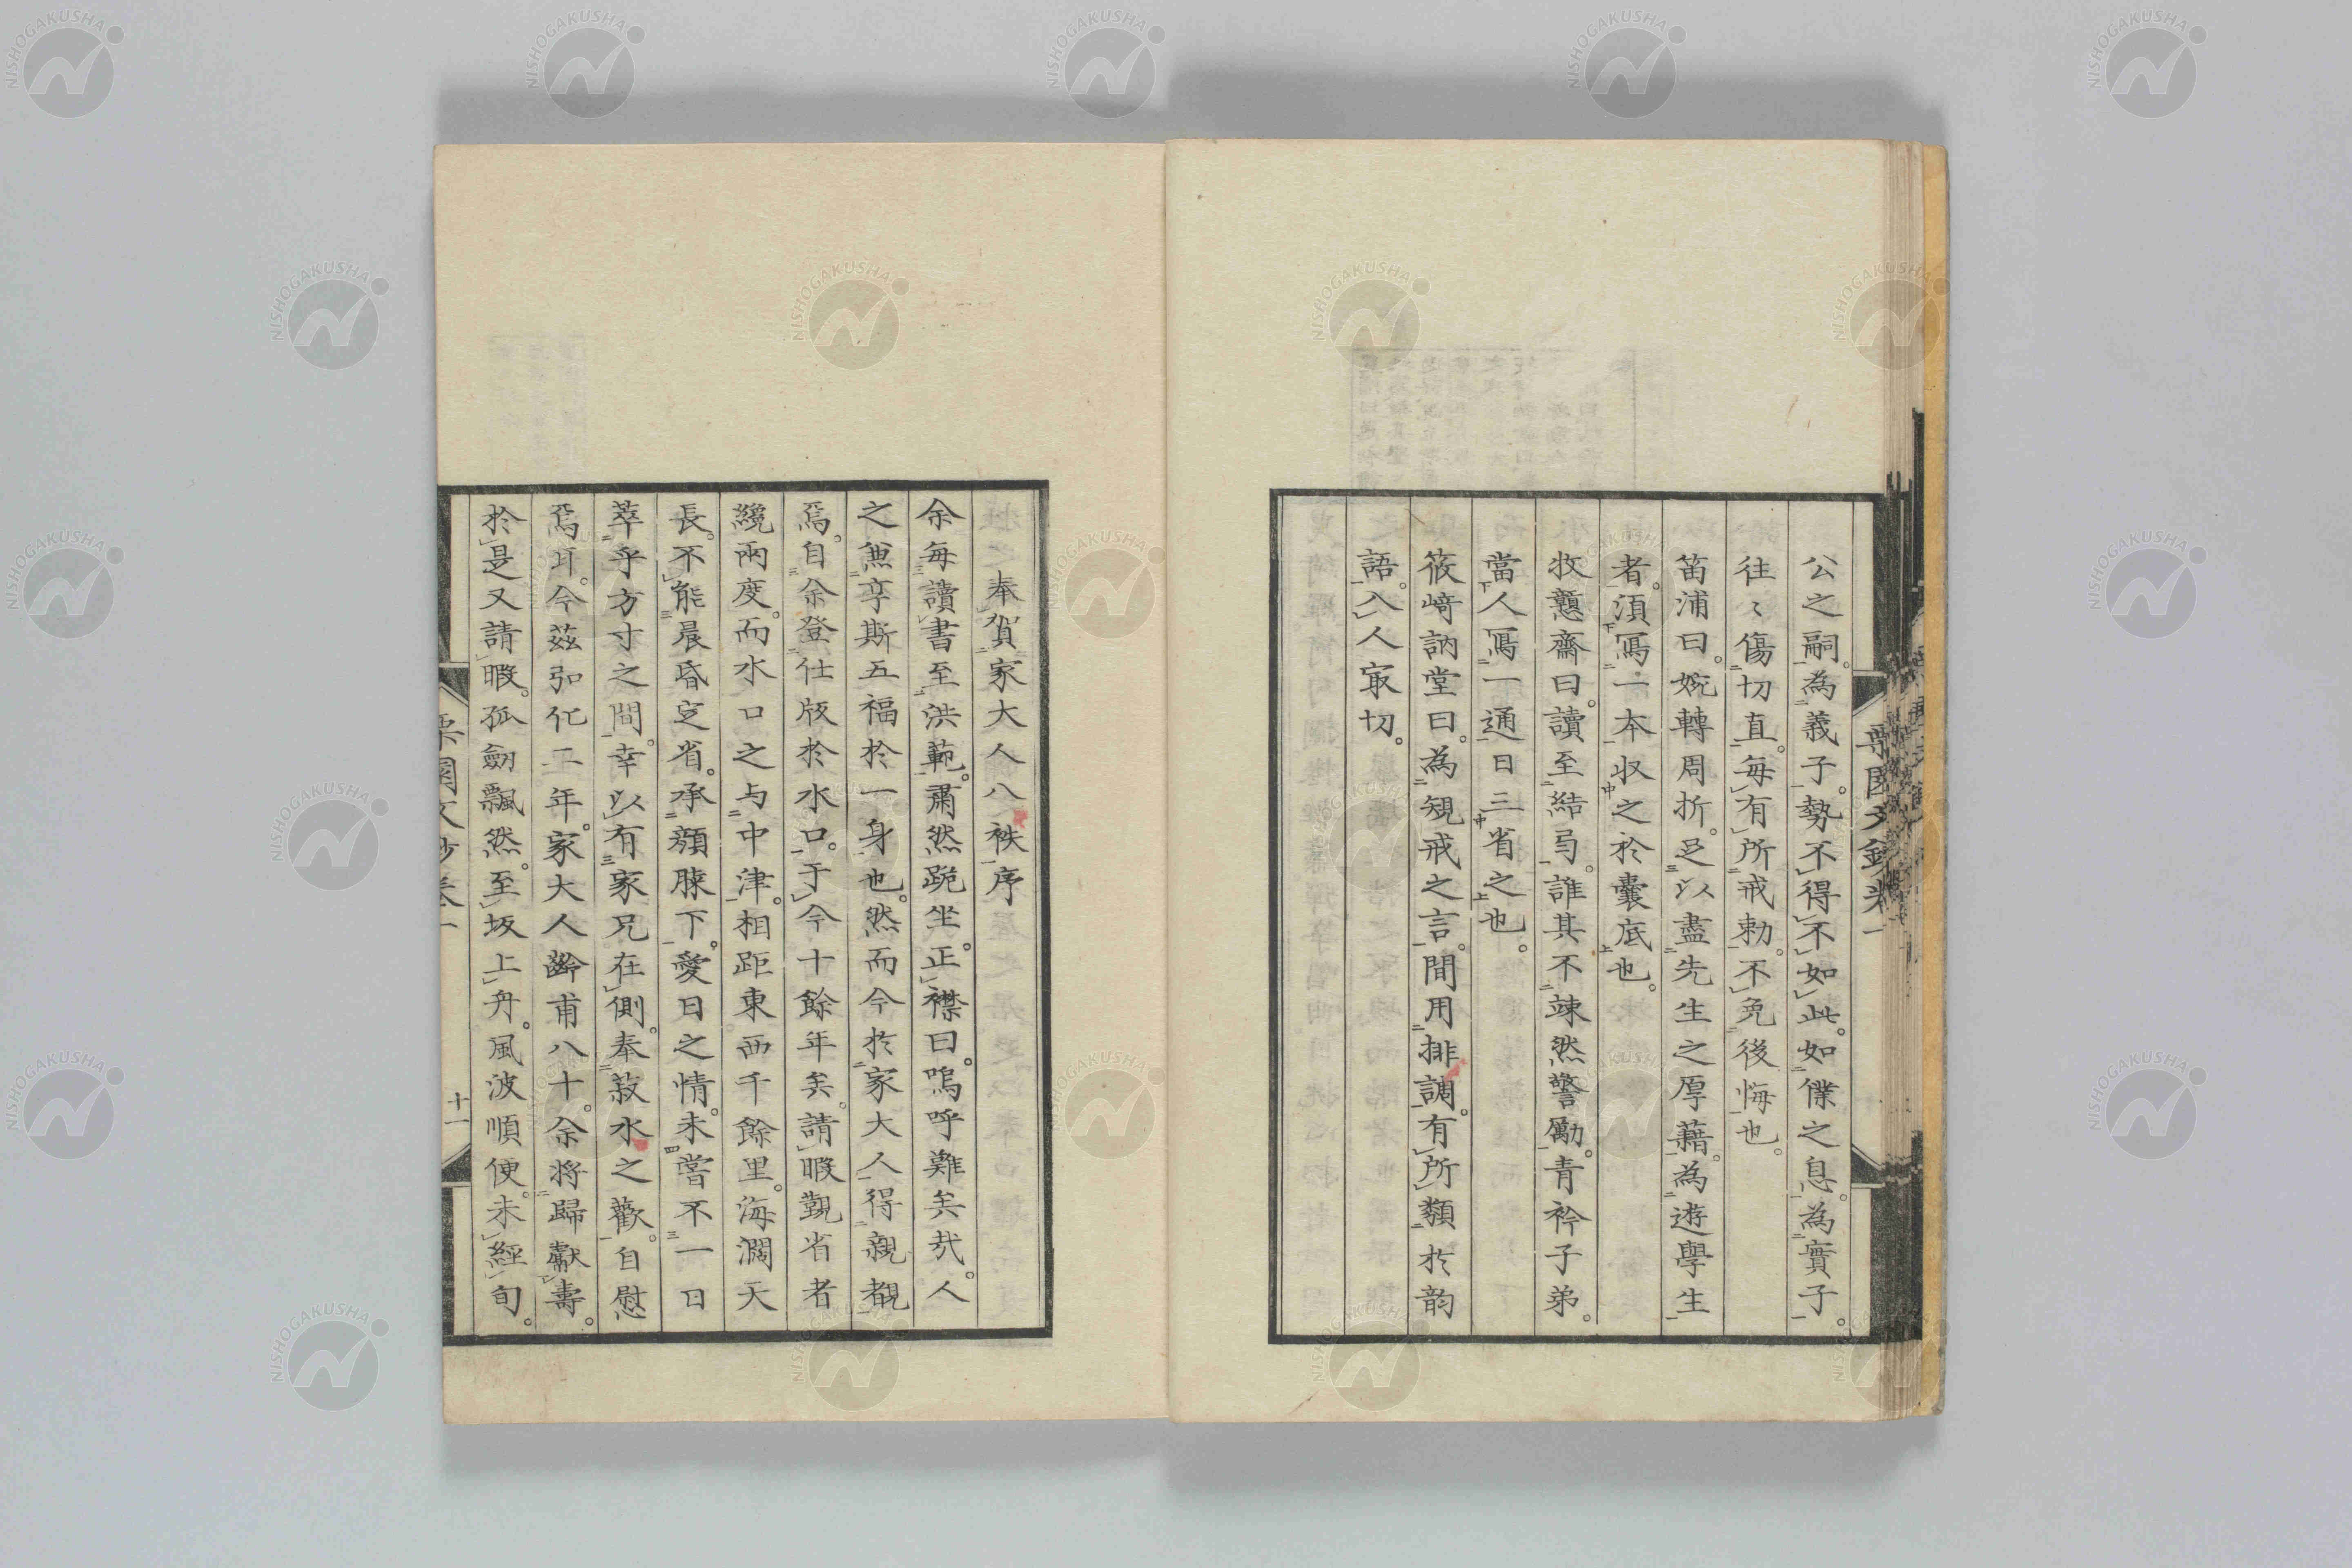 公之嗣。為義子。勢不得不如此。如僕之息。為實子。
往々傷切直。毎有所戒勅。不免後悔也。
笛浦曰。婉轉周折。足以盡先生之厚藉。為遊學生
者。須寫一本収之於囊底也。
牧戇齋曰。讀至結弖。誰其不竦然警勵。青衿子弟。
當人寫一通日三省之也。
筱﨑訥堂曰。為規戒之言。間用排調。有所類於韵
語。入人㝡切。
奉賀家大人八秩序
余毎讀書至洪範。肅然跪坐。正襟曰。嗚呼難矣哉。人
之兼享斯五福於一身也。然而今於家大人得親覩
焉。自余登仕版於水口。于今十餘年矣。請暇覲省者
纔兩度。而水口之与中津。相距東西千餘里。海濶天
長。不能晨昏定省。承顔膝下。愛日之情。未嘗不一日
萃乎方寸之間。幸以有家兄在側。奉菽水之歡。自慰
焉耳。今茲弘化二年。家大人齡甫八十。余将歸獻壽。
於是又請暇。孤劔飄然。至坂上舟。風波順便。未經旬。
栗園文鈔卷一
十一